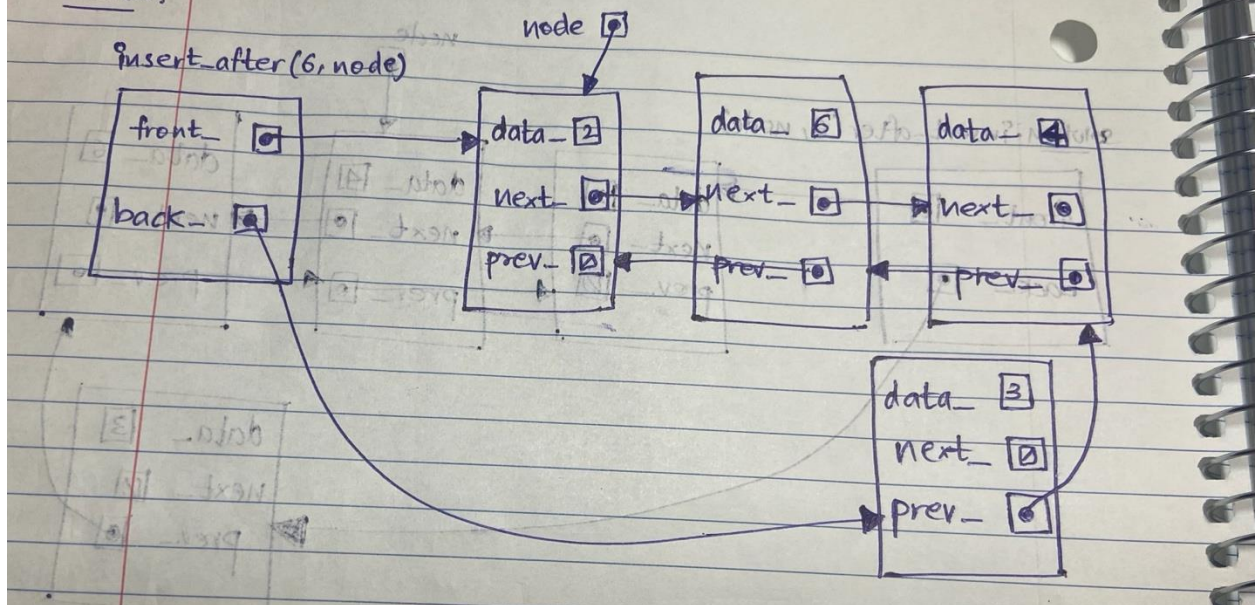 node
insert_after(6, node)
front_
back_
data_ 2
next_
prev_ 0
data_ 6
next_
prev_
data_ 4
next_
prev_
data_ 3
next_ 0
prev_